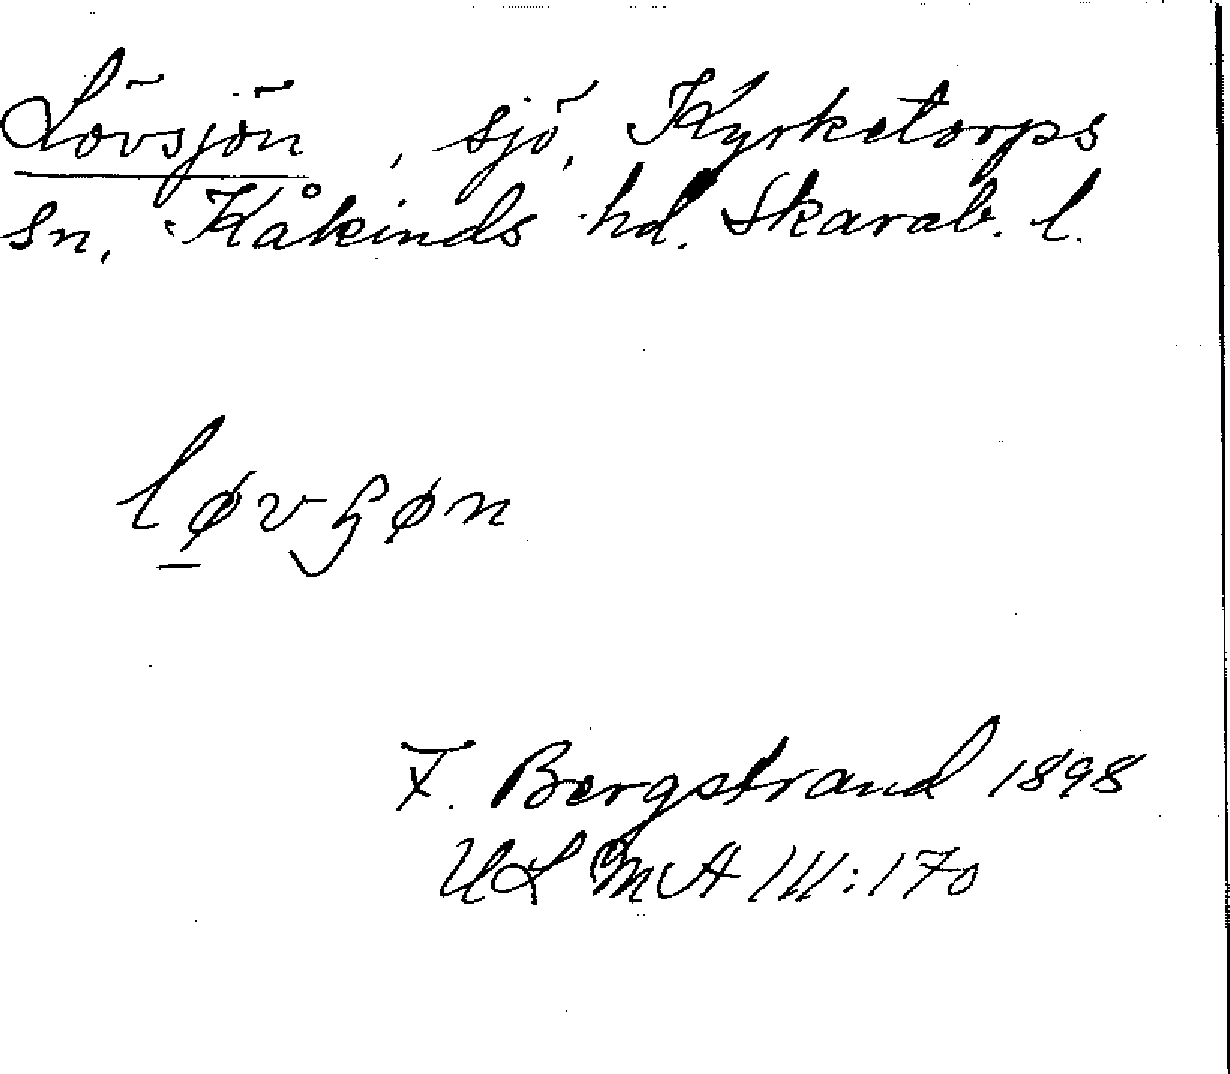 Lövsjön, sjö, Kyrketorps
sn. Kåkinds hd. Skarab. l.
F. Bergstrand 1898
ULMA 111:170